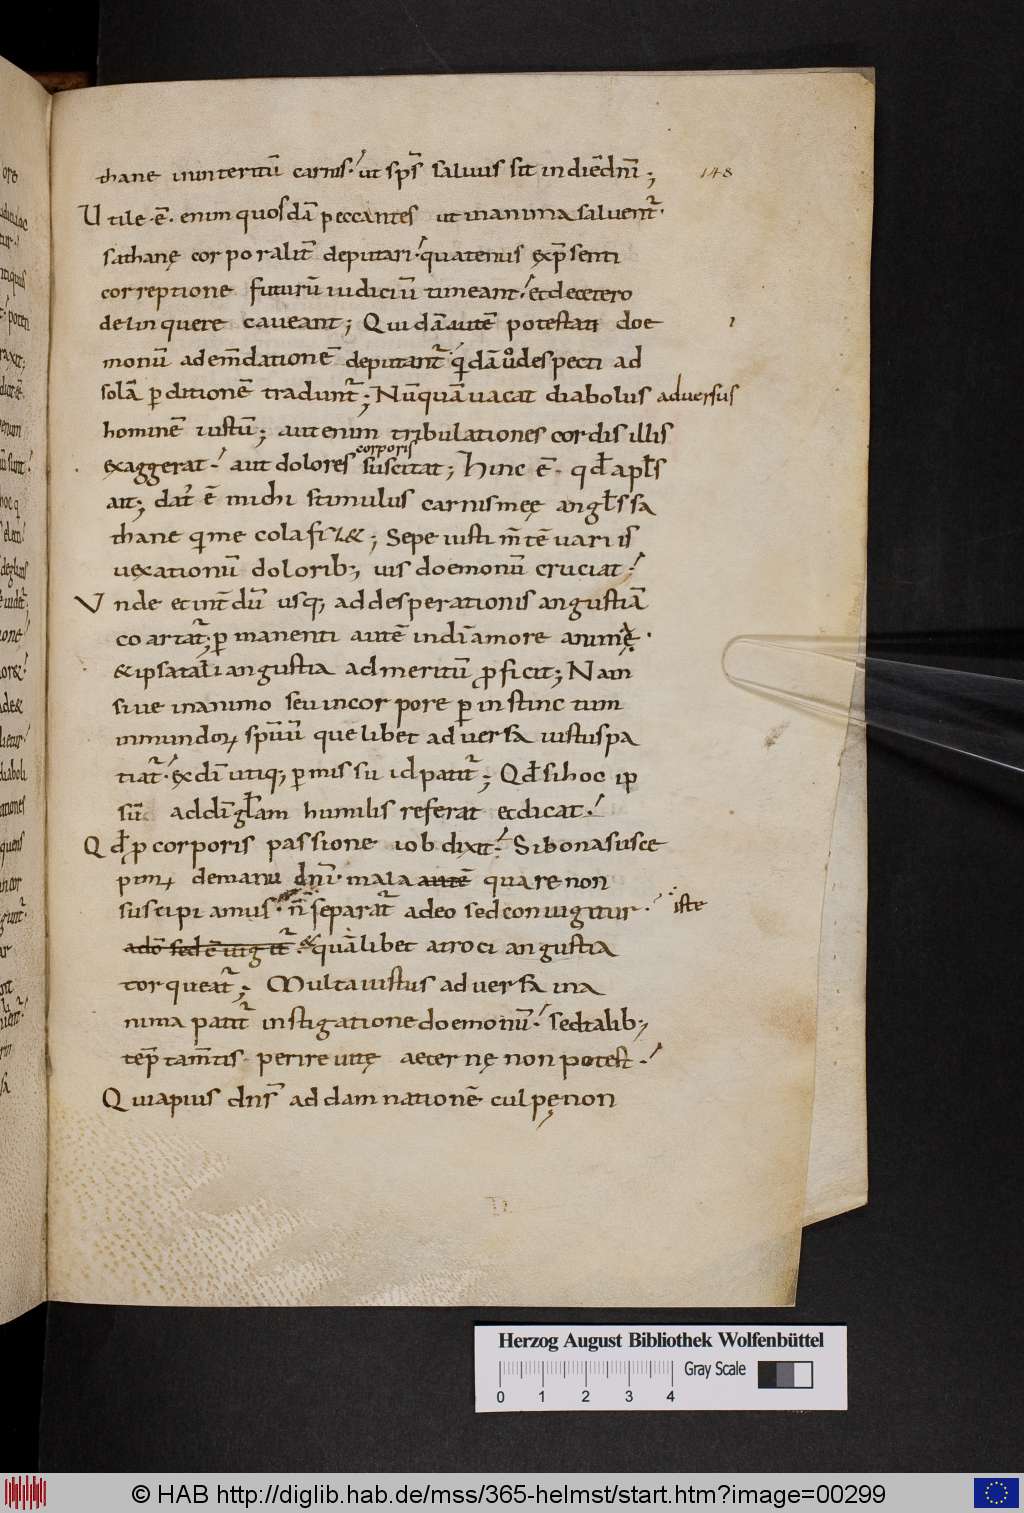 thane inInteritū carnis· ut sp̄s saluus sit in diē dn̄i;
148
Utile·ē· enim quosdā peccantes ut in anima saluent᷑·
sathanę corporalit̄ deputari· quatenus ex p̄senti
correptione futurū iudiciū timeant· et de cetero
delinquere caveant; Quidā autē potestati doe
1
monū ad em̄dationē deputant᷑· qͥdā ū despecti ad
solā ꝑditionē tradunt᷑; Nūquā vacat diabolus adversus
hominē iustū; aut enim tribulationes cordis illis
exaggerat· aut dolores corporis suscitat; Hinc ē· qđ apl̄s
ait; dat᷑ ē michi stimulus carnis meę angl̄s sa
thane qͥ me colafiz&; Sepe iusti m̄tē variis
vexationū dolorib; vis doemonū cruciat·
Unde et int̄dū usq; ad desperationis angustiā
coartat᷑; ꝑmanenti autē in dī amore animę·
& ipsa tal̄i angustia ad meritū ꝓficit; Nam
sive in animo seu in corpore ꝑ instinctum
inmundoꝝ sp̄uū quelibet adversa iustus pa
tiat᷑· ex dī utiq; ꝑmissu id patit᷑; Qđ si hoc ip
sū ad dī gl̄am humilis referat et dicat·
Qđ ꝓ corporis passione iob dixit· Si bona susce
pimꝰ de manu dn̄i· mala autē quare non
suscipiamus· n̄ separat᷑ a deo sed coniugitur· iste
adō sed ē iugit᷑· & quālibet atroci angustia
torqueat᷑; Multa iustus adversa in a
nima patit᷑ instigatione doemonū· sed talib;
tēptam̄tis perire vitę aeternę non potest·
Quia pius dn̄s ad damnationē culpę non
Herzog August Bibliothek Wolfenbüttel
Gray Scale
0 1 2 3 4
© HAB http://diglib.hab.de/mss/365-helmst/start.htm?image=00299